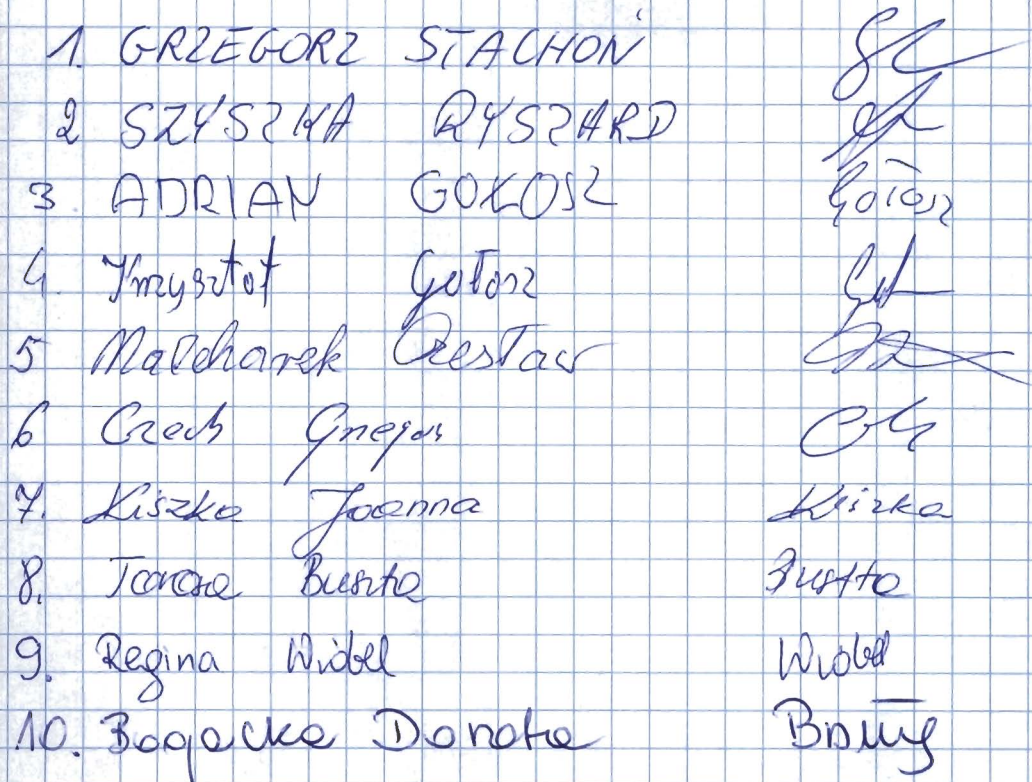 1. GRZEGORZ STACHOŃ
2 SZYSZKA RYSZARD
3 ADRIAN GOŁOSZ Gołosz
4. Krzysztof Gołosz
5 Malcharek Czesław
6 Czech Grzegorz
7. Kiszka Joanna Kiszka
8. Teresa Buszta Buszta
9. Regina Wróbel Wróbel
10. Bogacka Danota